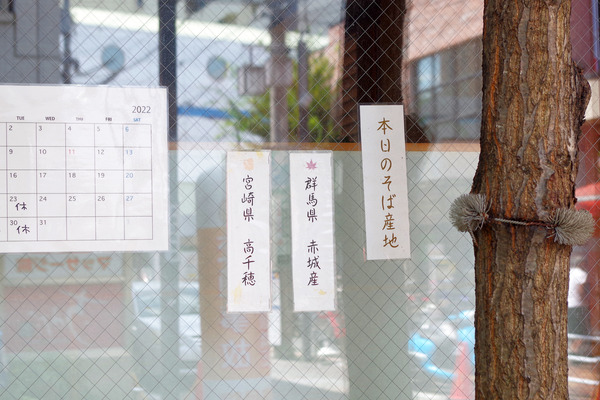 2022
TUE WED THU FRI SAT
2 3 4 5 6
9 10 11 12 13
16 17 18 19 20
23 休 24 25 26 27
30 休 31
本日のそば産地
群馬県 赤城産
宮崎県 高千穂